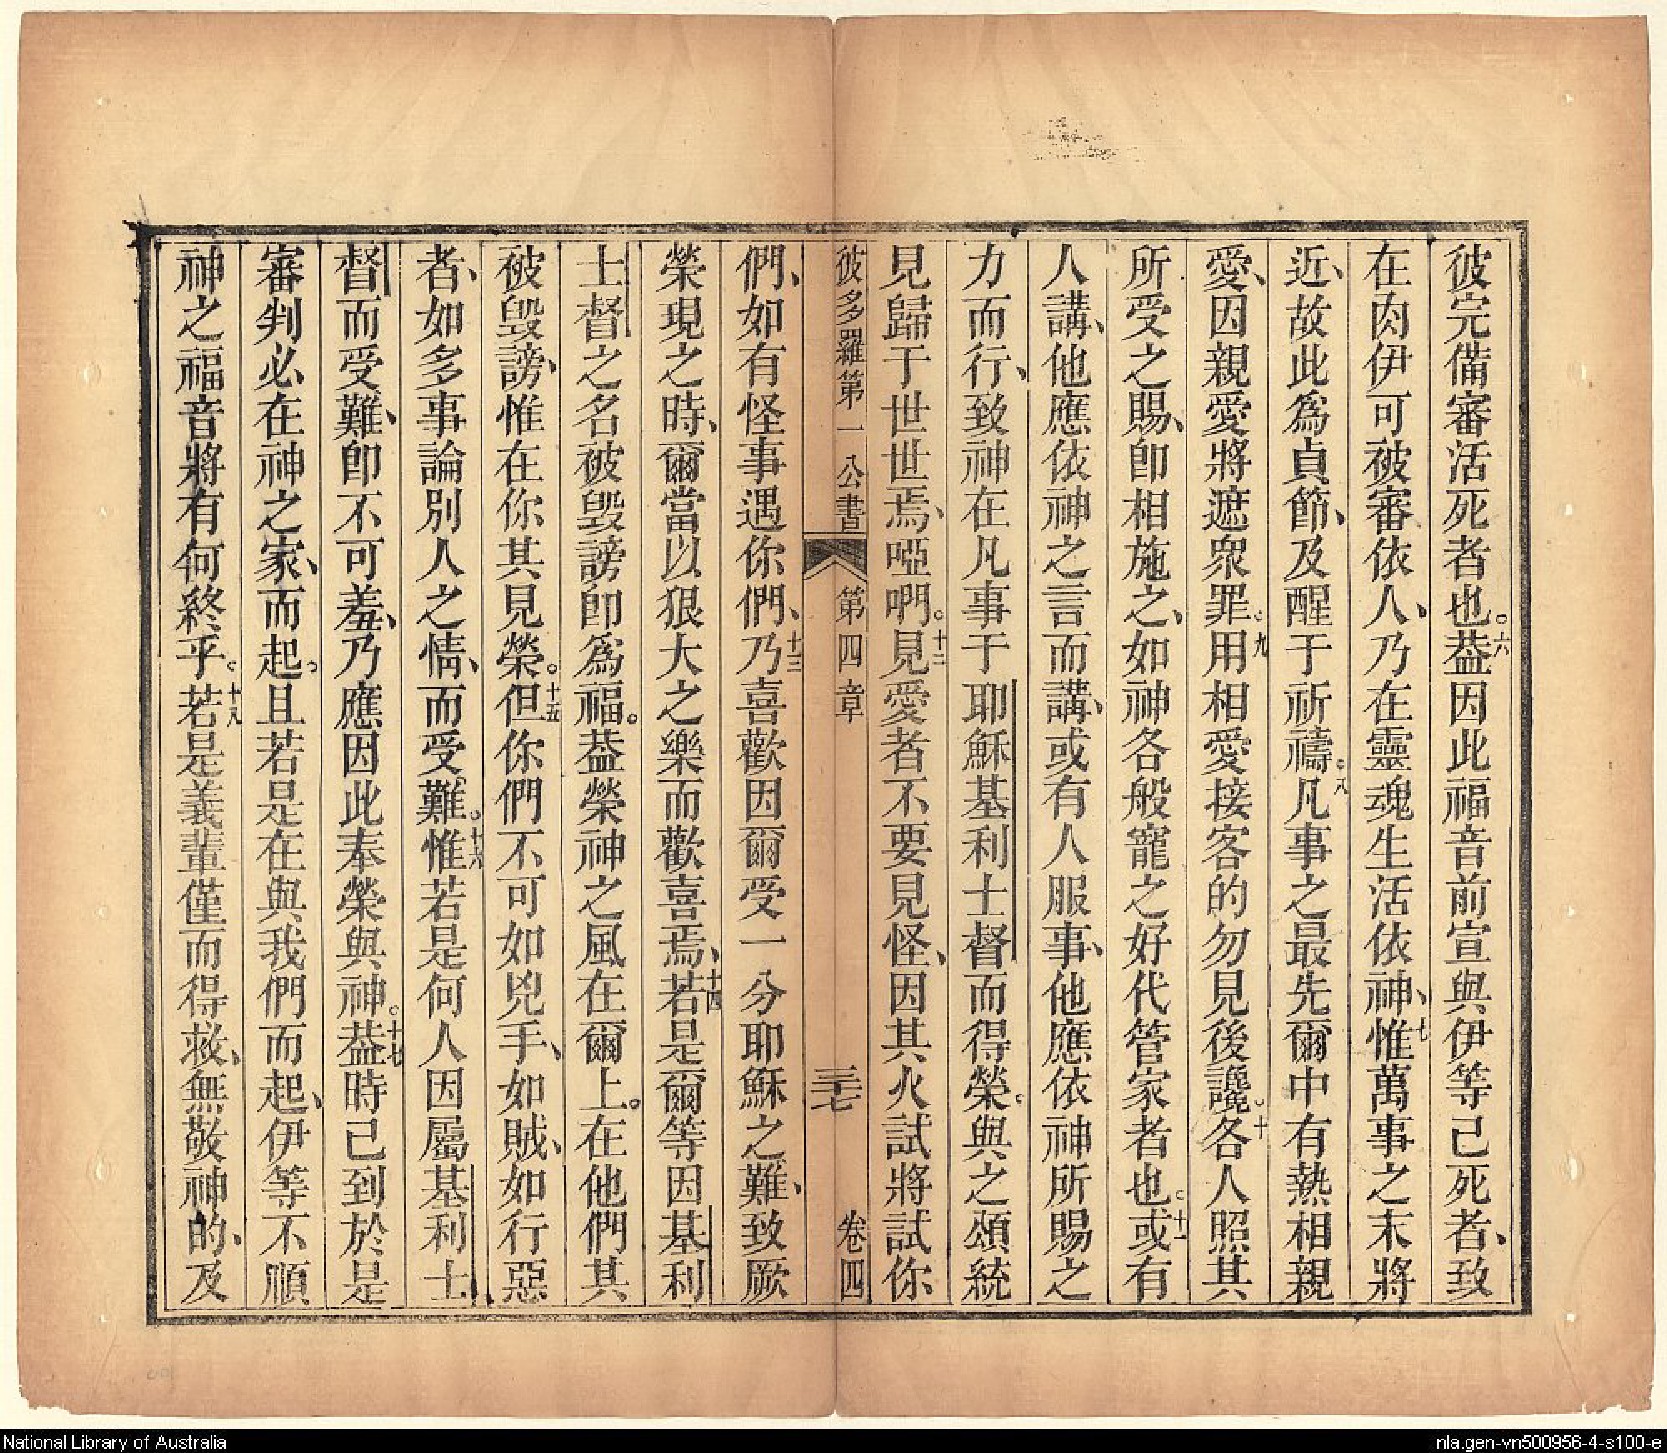 彼完備審活死者也。六葢因此福音前宣與伊等己死者、致
在肉伊可被審依人、乃在靈魂生活依神、七惟萬事之末將
近、故此爲貞節、及醒于祈禱。八凡事之最先爾中有熱相親
愛、因親愛將遮衆罪。九用相愛接客的勿見後讒。十各人照其
所受之賜、卽相施之、如神各般寵之好代管家者也。十一或有
人講、他應依神之言而講、或有人服事、他應依神所賜之
力而行、致神在凡事于耶穌基利士督而得榮。與之頌統
見歸于世世焉、啞啊。十二見愛者不要見怪、因其火試將試你
彼多羅第一公書 第四章 三十七 卷四
們、如有怪事遇你們、十三乃喜歡因爾受一分耶穌之難、致厥
榮現之時、爾當以狠大之樂而歡喜焉、十四若是爾等因基利
士督之名被毀謗卽爲福。葢榮神之風在爾上。在他們其
被毀謗、惟在你其見榮。十五但你們不可如兇手、如賊、如行惡
者、如多事論別人之情、而受難。十六惟若是何人因屬基利士
督而受難、卽不可羞、乃應因此奉榮與神。十七葢時己到於是
審判必在神之家、而起。且若是在與我們而起、伊等不順
神之福音將有何終乎。十八若是義輩僅而得救、無敬神的、及
National Library of Australia
nla.gen-vn500956-4-s100-e